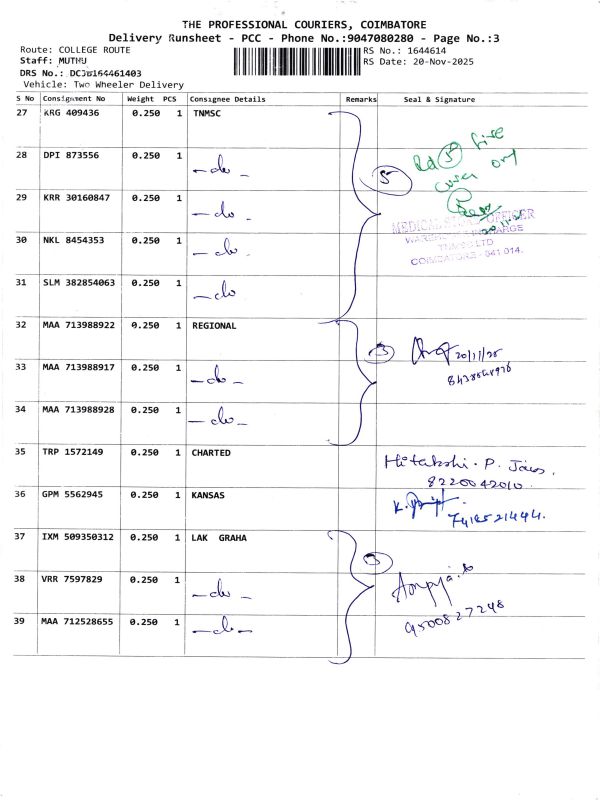 THE PROFESSIONAL COURIERS, COIMBATORE
Delivery Runsheet - PCC - Phone No.:9047080280 - Page No.:3
Route: COLLEGE ROUTE
RS No.: 1644614
Staff: MUTHU
RS Date: 20-Nov-2025
DRS No.: DCJB164461403
Vehicle: Two Wheeler Delivery
S No Consignment No Weight PCS Consignee Details Remarks Seal & Signature
27 KRG 409436 0.250 1 TNMSC
28 DPI 873556 0.250 1 -do-
5
Rd 5 five
cover only
29 KRR 30160847 0.250 1 -do-
MEDICAL OFFICER
WAREHOUSE INCHARGE
30 NKL 8454353 0.250 1 -do-
TNMSC LTD
COIMBATORE - 641 014.
31 SLM 382854063 0.250 1 -do
32 MAA 713988922 0.250 1 REGIONAL
3
20/11/25
33 MAA 713988917 0.250 1 -do-
34 MAA 713988928 0.250 1 -do-
35 TRP 1572149 0.250 1 CHARTED
Hitakshi. P. Jain.
8220042010
36 GPM 5562945 0.250 1 KANSAS
37 IXM 509350312 0.250 1 LAK GRAHA
3
38 VRR 7597829 0.250 1 -do-
39 MAA 712528655 0.250 1 -do-
9500827248